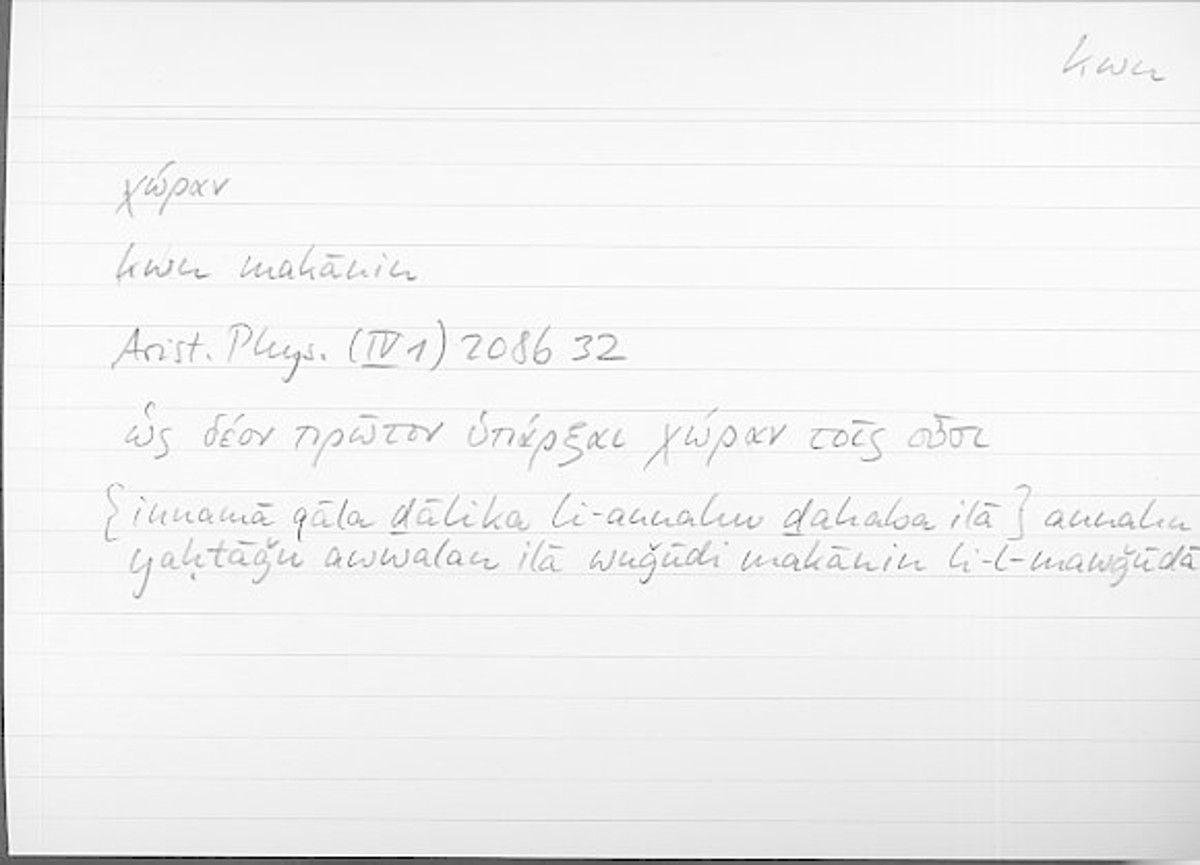 kwn
χώραν
kwn makānin
Arist. Phys. (IV 1) 208b 32
ὡς δέον πρῶτον ὑπάρξαι χώραν τοῖς οὖσι
{innamā qāla ḏālika li-annahu ḏahaba ilā} annahu
yaḥtāǧu awwalan ilā wuǧūdi makānin li-l-mawǧūdā